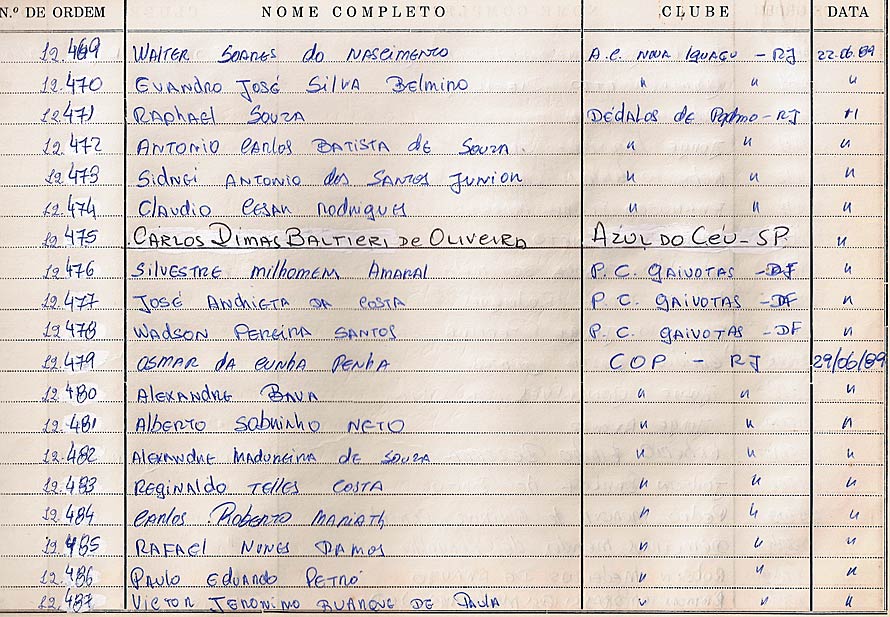 N.º DE ORDEM NOME COMPLETO CLUBE DATA
12.469 WALTER SOARES do NASCIMENTO A.C. NOVA IGUAÇU - RJ 22.06.89
12.470 EVANDRO JOSÉ SILVA BELMINO " " "
12.471 RAPHAEL SOUZA DÉDALOS de - RJ "
12.472 ANTONIO CARLOS BATISTA de SOUZA " " "
12.473 SIDNEI ANTONIO dos SANTOS JUNIOR " " "
12.474 CLAUDIO CESAR RODRIGUES " " "
12.475 CARLOS DIMAS BALTIERI DE OLIVEIRA AZUL DO CÉU - SP "
12.476 SILVESTRE MILHOMEM AMARAL P.C. GAIVOTAS - DF "
12.477 JOSÉ ANCHIETA DA COSTA P.C. GAIVOTAS - DF "
12.478 WADSON PEREIRA SANTOS P.C. GAIVOTAS - DF "
12.479 OSMAR DA CUNHA PENHA COP - RJ 29/06/89
12.480 ALEXANDRE " " "
12.481 ALBERTO SOBRINHO NETO " " "
12.482 ALEXANDRE MADUREIRA de SOUZA " " "
12.483 REGINALDO TELLES COSTA " " "
12.484 CARLOS ROBERTO MARIATH " " "
12.485 RAFAEL NUNES RAMOS " " "
12.486 PAULO EDUARDO PETRÓ " " "
12.487 VICTOR JERONIMO BUARQUE DE PAULA " " "